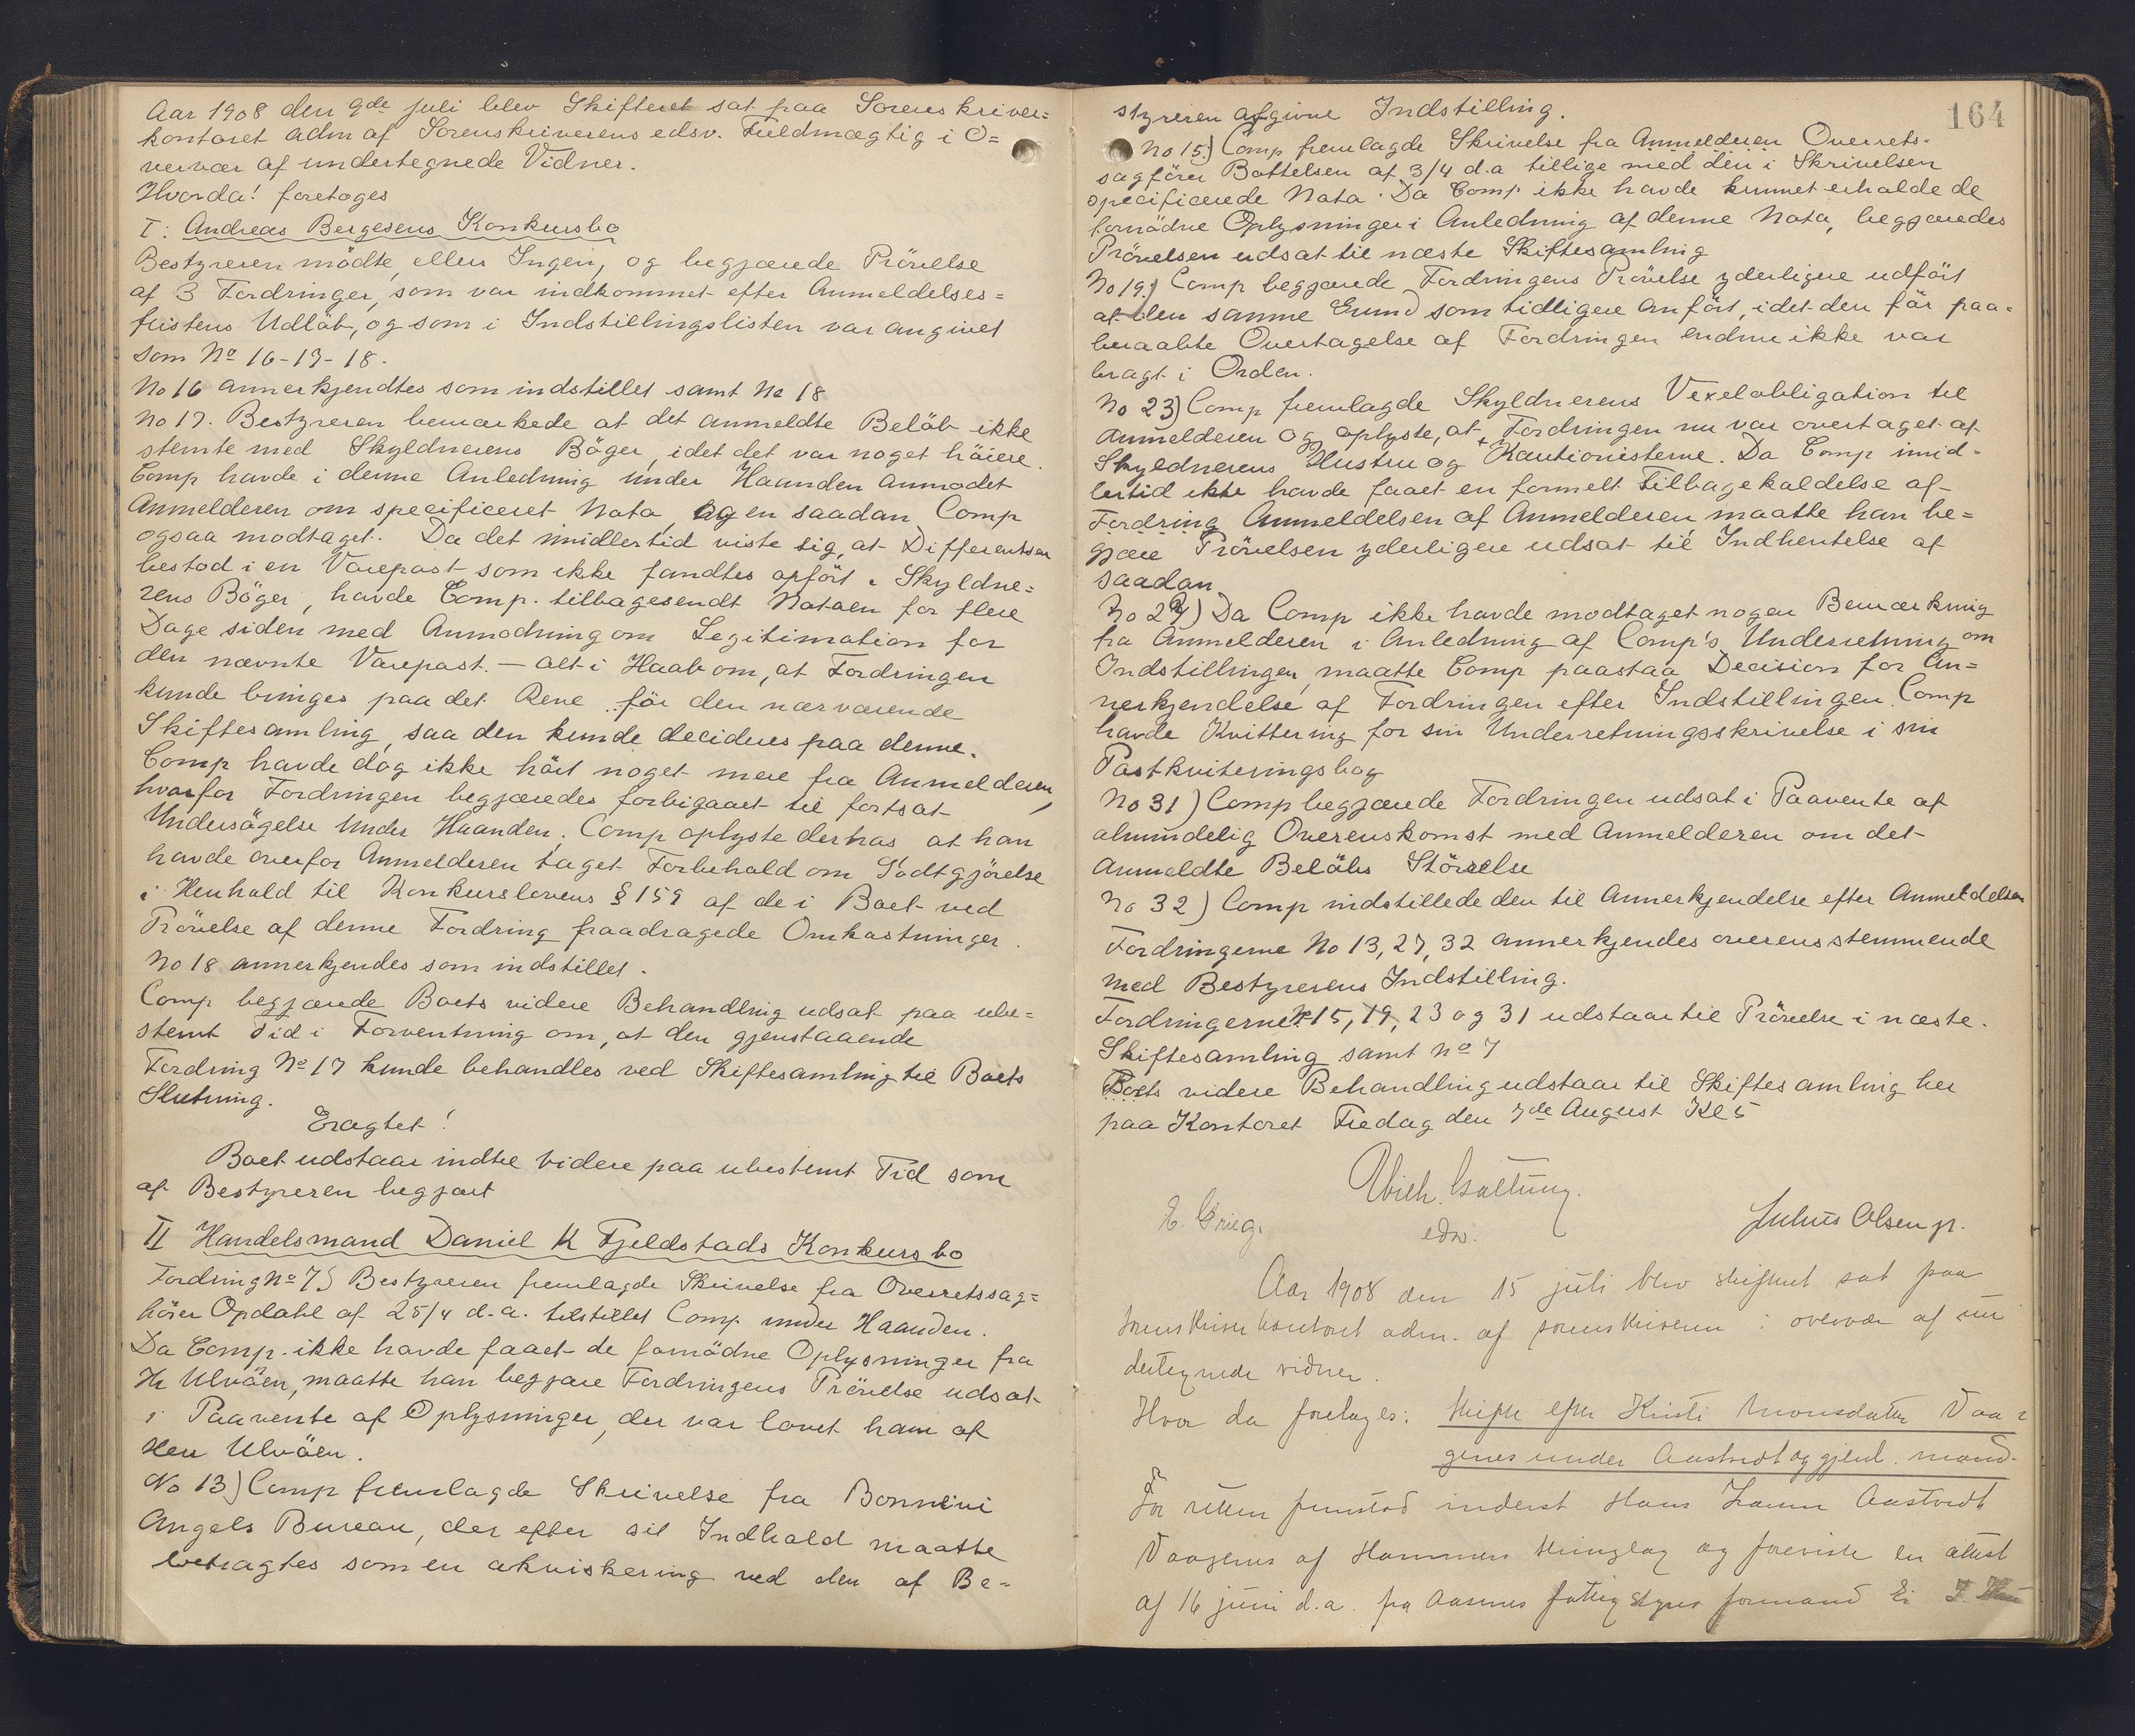 Aar 1908 den 9de juli blev Skifteret sat paa Sorenskriver=
kontoret adm af Sorenskriverens edsv. Fuldmægtig i O=
vervær af undertegnede Vidner.
Hvorda! foretoges
I: Andreas Bergesens Konkursbo
Bestyreren mödte, ellers Ingen, og begjærede Prövelse
af 3 Fordringer, som var indkommet efter Anmeldelses=
fristens Udlöb, og som i Indstillingslisten var angivet
som No 16-17-18.
No 16 annerkjendtes som indstillet samt No 18
No 17. Bestyreren bemærkede at det anmeldte Belöb ikke
stemte med Skyldnerens Böger, idet det var noget höiere.
Comp havde i denne Anledning under Haanden anmodet
Anmelderen om specificeret Nota og en saadan Comp
ogsaa modtaget. Da det imidlertid viste sig, at Differentsen
bestod i en Varepost som ikke fandtes opfört i Skyldne=
rens Böger, havde Comp. tilbagesendt Notaen for flere
Dage siden med Anmodning om Legitimation for
den nævnte Varepost. — alt i Haab om, at Fordringen
kunde bringes paa det Rene för den nærværende
Skiftesamling, saa den kunde decideres paa denne.
Comp havde dog ikke hört noget mere fra Anmelderen,
hvorfor Fordringen begjæredes forbigaaet til fortsat
Undersögelse under Haanden. Comp oplyste derhos at han
havde overfor Anmelderen taget Forbehold om Godtgjörelse
i Henhold til Konkurslovens § 159 af de i Boet ved
Prövelse af denne Fordring paadragede Omkostninger.
No 18 annerkjendes som indstillet.
Comp begjærede Boets videre Behandling udsat paa ube=
stemt Tid i Forventning om, at den gjenstaaende
Fordring No 17 kunde behandles ved Skiftesamling til Boets
Slutning.
Eragtet!
Boet udstaar indtil videre paa ubestemt Tid som
af Bestyreren begjært
II Handelsmand Daniel K Fjeldstads Konkursbo
Fordring No 7) Bestyreren fremlagde Skrivelse fra Overretssag=
förer Opdahl af 25/4 d.a. tilstillet Comp under Haanden.
Da Comp. ikke havde faaet de fornödne Oplysninger fra
Hr Ulvöen, maatte han begjære Fordringens Prövelse udsat
i Paavente af Oplysninger, der var lovet ham af
Herr Ulvöen.
No 13) Comp fremlagde Skrivelse fra Bonnevie
Angels Bureau, der efter sit Indhold maatte
betragtes som en akviskering ved den af Be=
164
styreren afgivne Indstilling.
No 15) Comp fremlagde Skrivelse fra Anmelderen Overrets-
sagförer Bottelsen af 3/4 d.a tillige med den i Skrivelsen
specificerede Nota. Da Comp ikke havde kunnet erholde de
fornödne Oplysninger i Anledning af denne Nota, begjæredes
Prövelsen udsat til næste Skiftesamling
No 19.) Comp begjærede Fordringens Prövelse yderligere udfört
af den samme Grund som tidligere anfört, idet den för paa=
beraabte Overtagelse af Fordringen endnu ikke var
bragt i Orden.
No 23) Comp fremlagde Skyldnerens Vexelobligation til
Anmelderen og oplyste, at Fordringen nu var overtaget af
Skyldnerens Hustru og Kautionisterne. Da Comp imid-
lertid ikke havde faaet en formelt Tilbagekaldelse af
Fordring Anmeldelsen af Anmelderen maatte han be=
gjære Prövelsen yderligere udsat til Indhentelse af
saadan
No 27) Da Comp ikke havde modtaget nogen Bemærkning
fra Anmelderen i Anledning af Comp's Underretning om
Indstillingen, maatte Comp paastaa Decision for An=
nerkjendelse af Fordringen efter Indstillingen. Comp
havde Kvittering for sin Underretningsskrivelse i sin
Postkviteringsbog
No 31) Comp begjærede Fordringen udsat i Paavente af
almindelig Overenskomst med Anmelderen om det
anmeldte Belöbs Störrelse
No 32) Comp indstillede den til Annerkjendelse efter Anmeldelsen
Fordringerne No 13, 27, 32 annerkjendes overensstemmende
med Bestyrerens Indstilling.
Fordringerne No 15, 19, 23 og 31 udstaar til Prövelse i næste
Skiftesamling samt No 7
Boets videre Behandling udstaar til Skiftesamling her
paa Kontoret Fredag den 7de August Kl 5
Wilh. Galtung.
E. Grieg. edsv. Julius Olsen jr.
Aar 1908 den 15 juli blev skifteret sat paa
sorenskriverkontoret adm. af sorenskriveren i overvær af un
dertegnede vidner.
Hvor da foretoges: Skifte efter Kristi Monsdatter Vaa=
genes under Aastvedt og gjenl. mand.
For retten fremstod inderst Hans Aastvedt
Vaagenes af Hammers thinglag og foreviste en attest
af 16 juni d.a. fra Aasenes fattigstyres formand